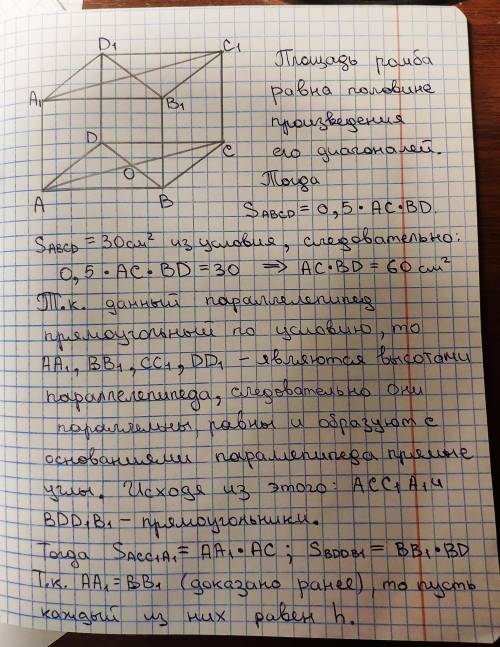 D₁
C₁
A₁
B₁
D
C
O
A
B
Площадь ромба
равна половине
произведения
его диагоналей.
Тогда
SABCD = 0,5·AC·BD.
SABCD = 30см² из условия, следовательно:
0,5·AC·BD = 30 ⇒ AC·BD = 60 см²
Т.к. данный параллелепипед
прямоугольный по условию, то
AA₁, BB₁, CC₁, DD₁ - являются высотами
параллелепипеда, следовательно они
параллельны, равны и образуют с
основаниями параллепипеда прямые
углы. Исходя из этого: ACC₁A₁ и
BDD₁B₁ - прямоугольники.
Тогда SACC₁A₁ = AA₁·AC; SBDDB₁ = BB₁·BD
Т.к. AA₁ = BB₁ (доказано ранее), то пусть
каждый из них равен h.